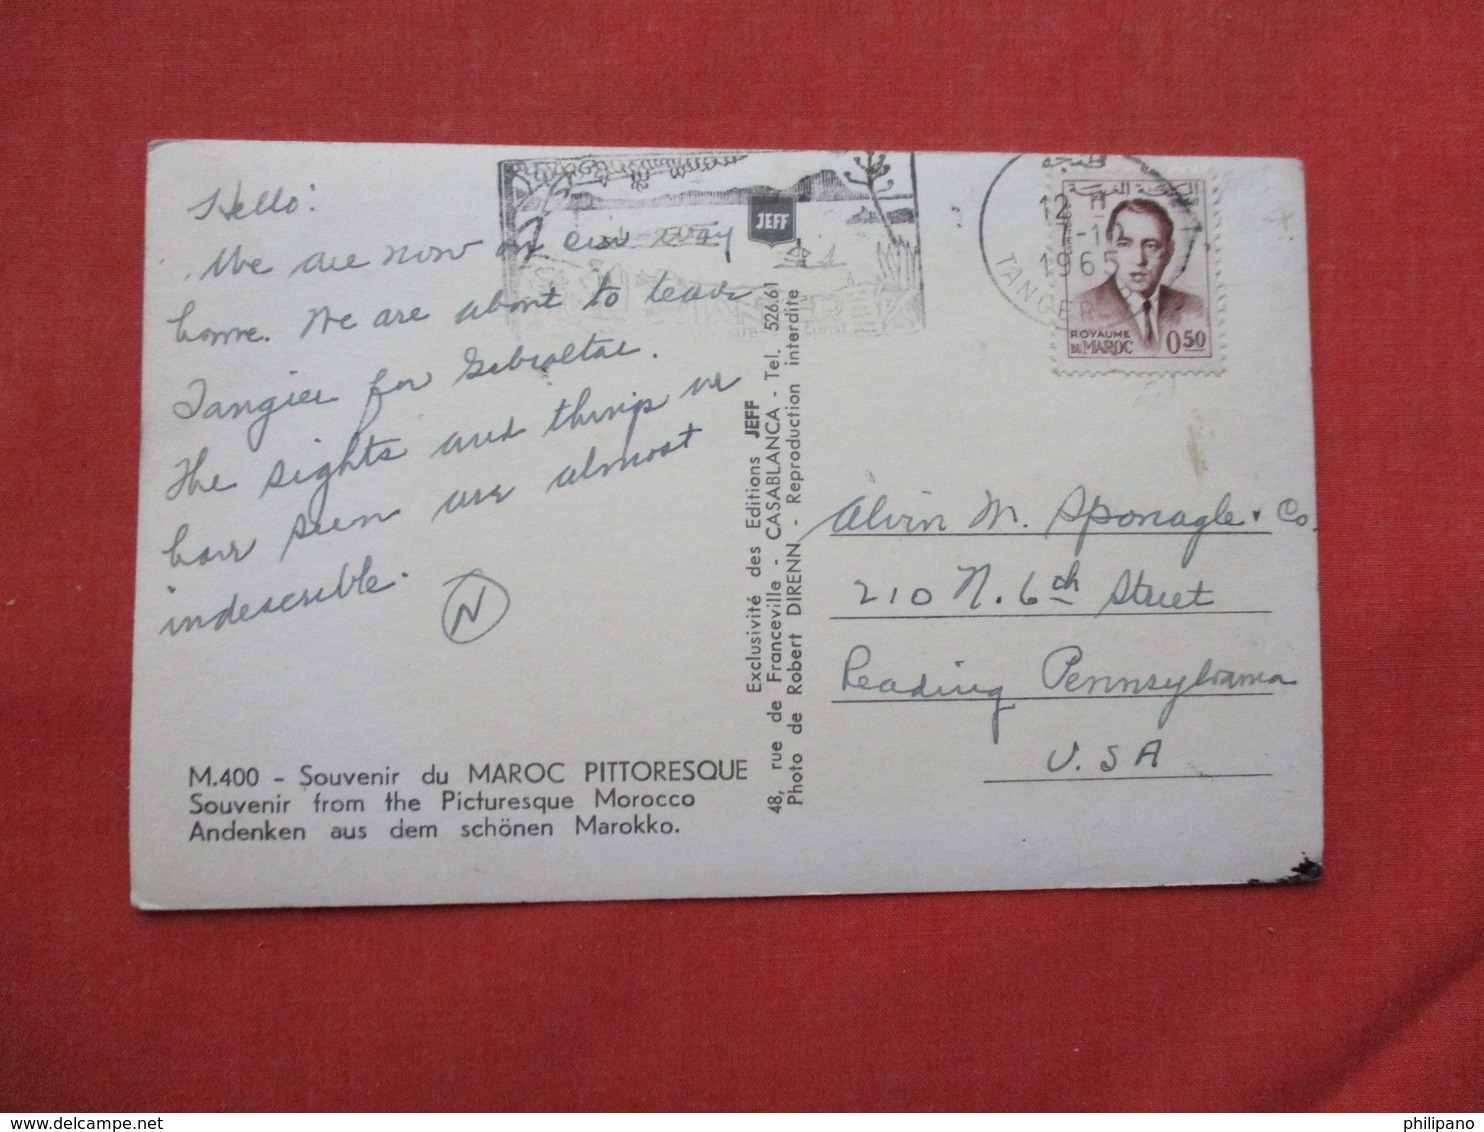 Hello!
We are now on our way
home. We are about to leave
Tangier for Gibraltar.
The sights and things we
have seen are almost
indescrible.
N
M.400 - Souvenir du MAROC PITTORESQUE
Souvenir from the Picturesque Morocco
Andenken aus dem schönen Marokko.
JEFF
Exclusivité des Editions JEFF
48, rue de Franceville - CASABLANCA - Tel. 526.61
Photo de Robert DIRENN - Reproduction interdite
طنجة
12 H
7-10
1965
TANGER
المملكة المغربية
ROYAUME
DU MAROC 0.50
Alvin M. Sponagle & Co.
210 N. 6th Street
Reading Pennsylvania
U.S A
philipano